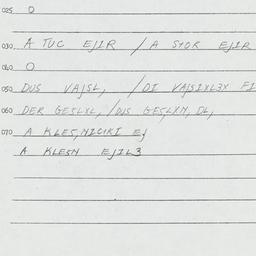 025 O
030 A TUC EJIR / A STOR EJIR
040 O
050 DUS VAJSL, / DI VAJSIXL3X FI
060 DER GESLXL, / DUS GESLXN, DL,
070 A KLES, NICIKI EJ
A KLESN EJIL3